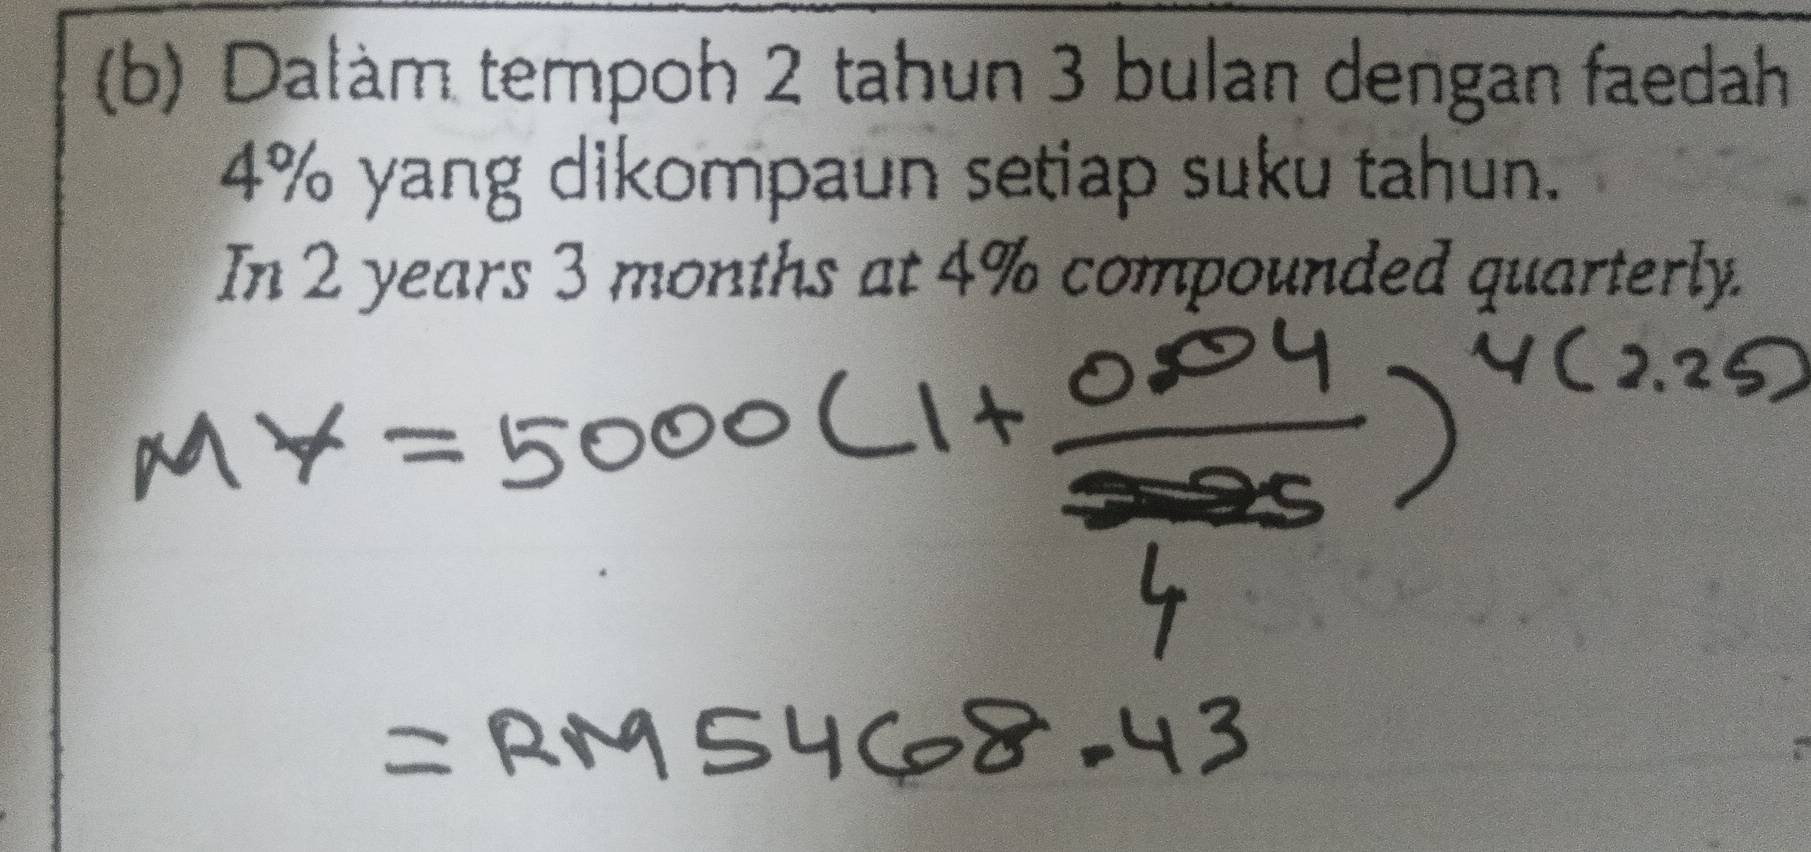 (b) Dalam tempoh 2 tahun 3 bulan dengan faedah
4% yang dikompaun setiap suku tahun.
In 2 years 3 months at 4% compounded quarterly.
MV = 5000(1 + 0.04/4)^4(2.25)
= RM 5468.43